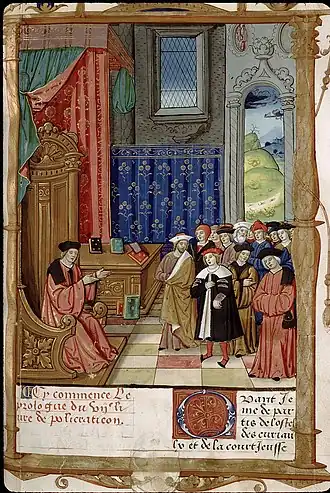 Cy commence le
prologue du vij.e li
ure de policraticon.
Quant Je
me de par
tis de loffi
des curiau
lx et de la courtoisie